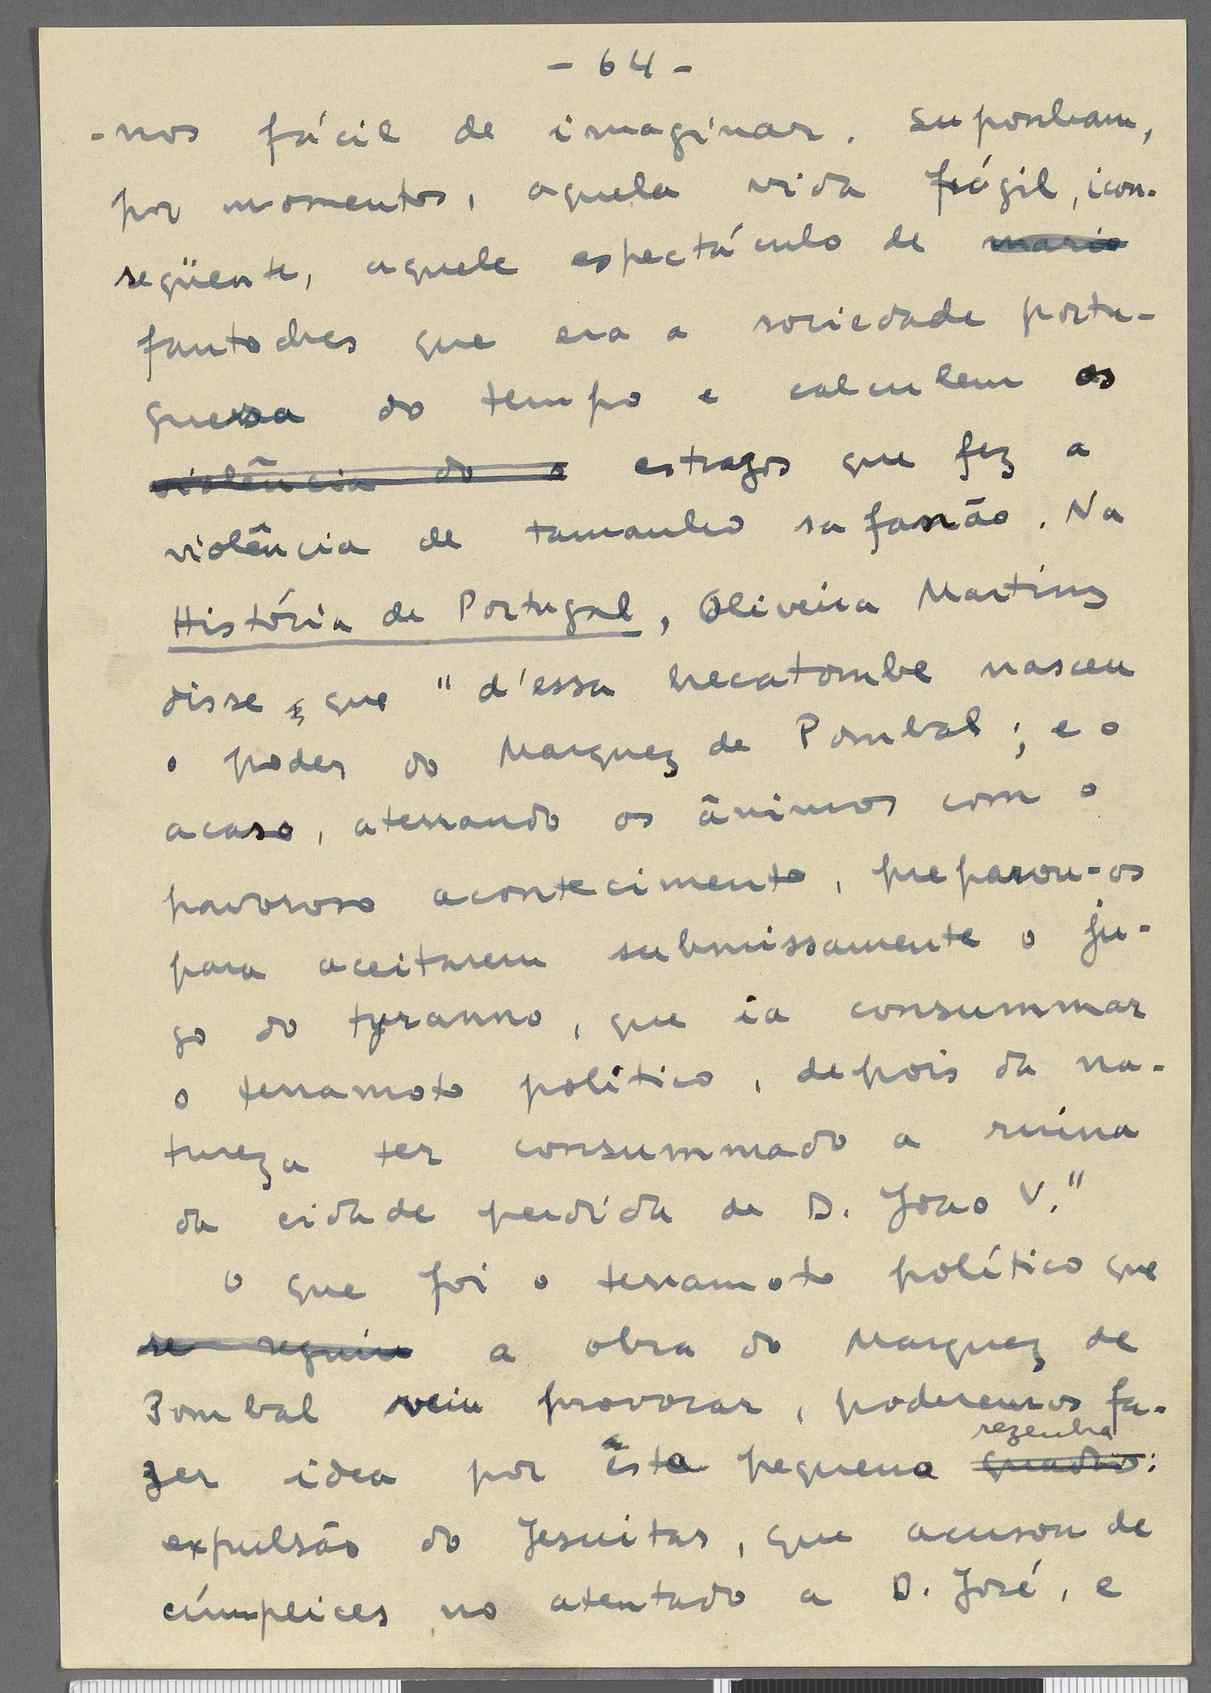 - 64 -
-nos fácil de imaginar. Suponham,
por momentos, aquela vida frágil, icon-
seqüente, aquele espectáculo de mario
fantoches que era a sociedade portu-
guesa do tempo e calculem os
violência do o estragos que fez a
violência de tamanho safanão. Na
História de Portugal, Oliveira Martins
disse, que "d'essa hecatombe nasceu
o poder do Marquez de Pombal; e o
acaso, aterrando os ânimos com o
pavoroso acontecimento, preparou-os
para aceitarem submissamente o ju-
go do tyranno, que ia consummar
o terramoto político, depois da na-
tureza ter consummado a ruína
da cidade perdida de D. Joao V."
O que foi o terramoto político que
se seguiu a obra do Marquez de
Pombal veiu provocar, poderemos fa-
zer idea por esta pequena quadro rezenha:
expulsão do Jesuitas, que acusou de
cúmplices no atentado a D. José, e